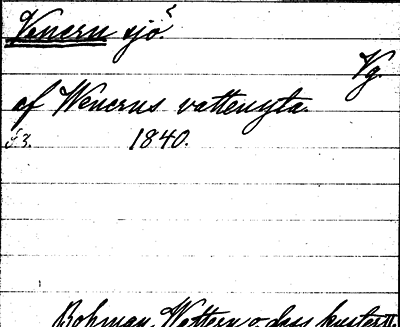 Venern sjö.
Vg.
af Wenerns vattenyta.
s 3. 1840.
Bohman, Wettern o dess kuster II